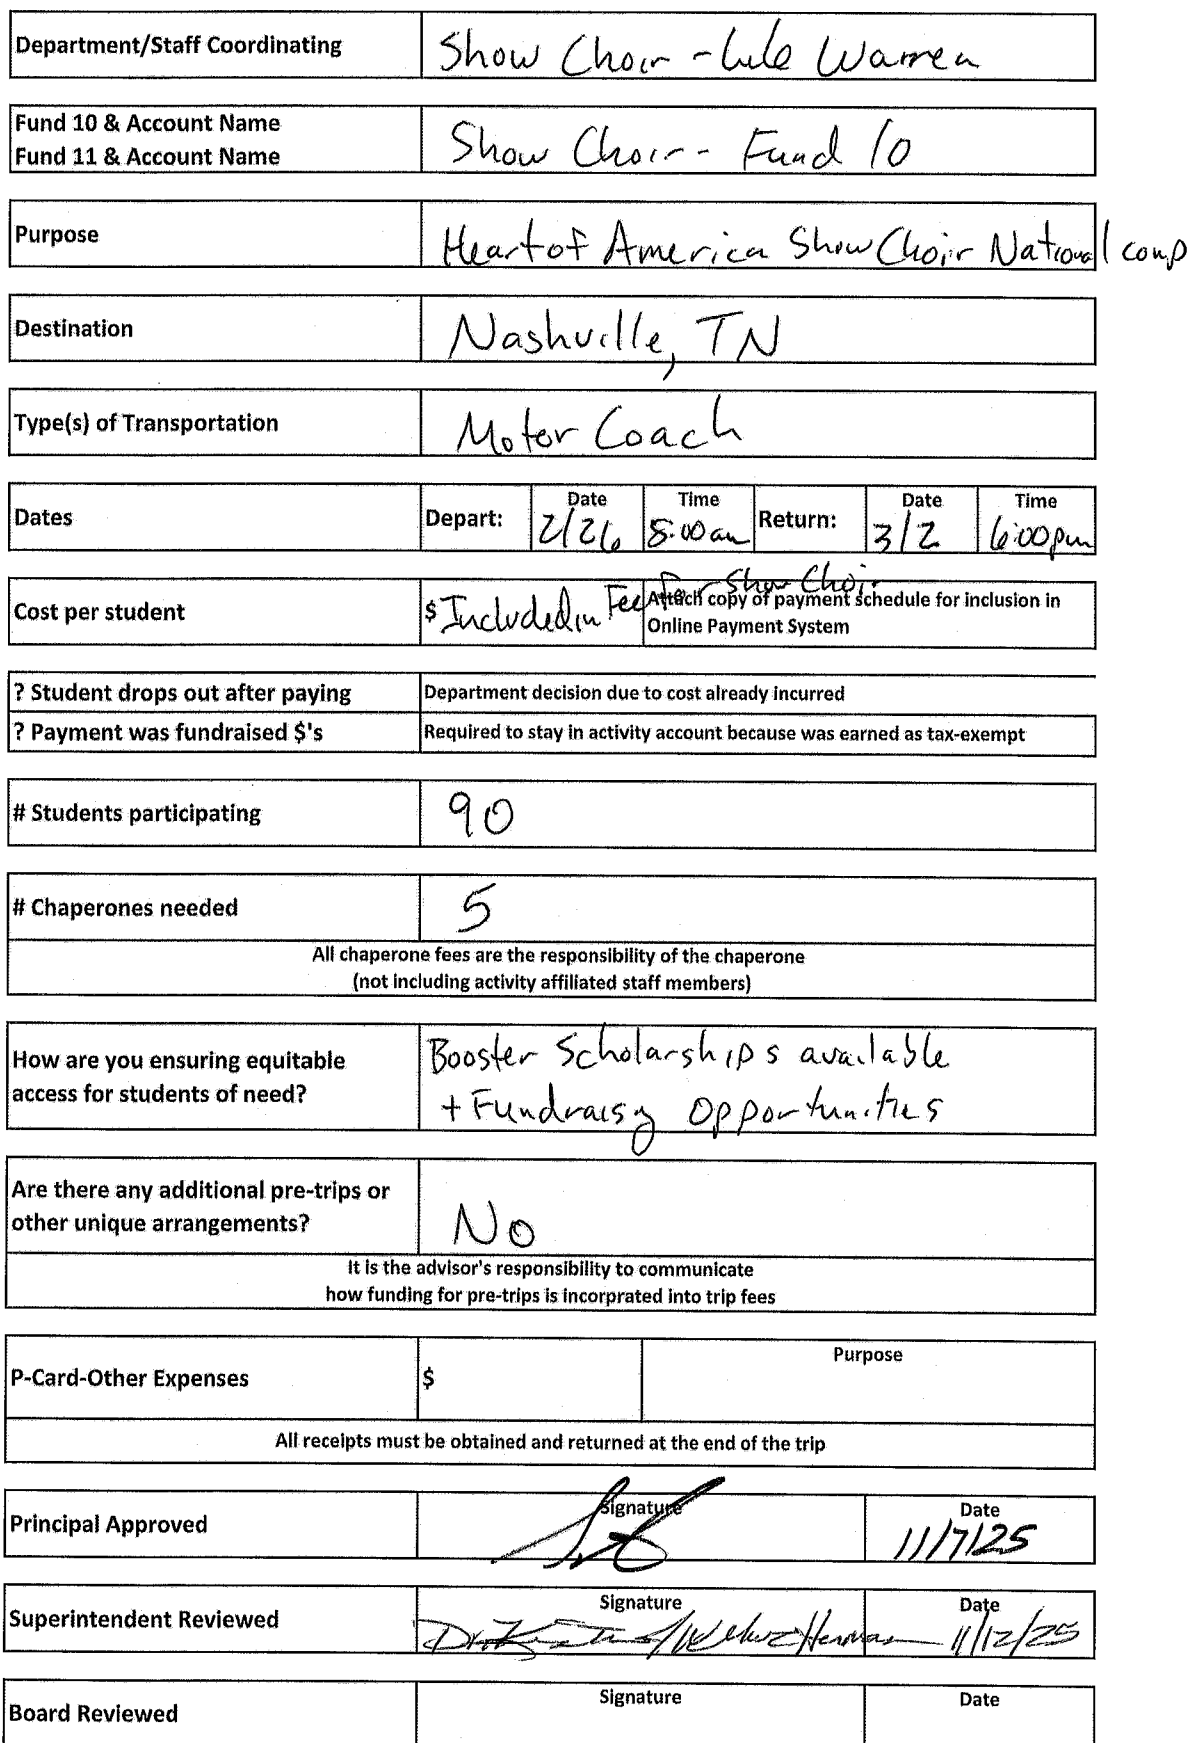 Department/Staff Coordinating Show Choir - Luke Warren
Fund 10 & Account Name
Fund 11 & Account Name
Show Choir - Fund 10
Purpose Heart of America Show Choir National comp
Destination Nashville, TN
Type(s) of Transportation Motor Coach
Dates Depart: Date 2/26 Time 8:00am Return: Date 3/2 Time 6:00pm
Cost per student $ Included in Fee for Show Choir
Attach copy of payment schedule for inclusion in
Online Payment System
? Student drops out after paying Department decision due to cost already incurred
? Payment was fundraised $'s Required to stay in activity account because was earned as tax-exempt
# Students participating 90
# Chaperones needed 5
All chaperone fees are the responsibility of the chaperone
(not including activity affiliated staff members)
How are you ensuring equitable
access for students of need?
Booster Scholarships available
+ Fundraisg Opportunities
Are there any additional pre-trips or
other unique arrangements?
No
It is the advisor's responsibility to communicate
how funding for pre-trips is incorprated into trip fees
P-Card-Other Expenses $ Purpose
All receipts must be obtained and returned at the end of the trip
Principal Approved Signature Date 11/7/25
Superintendent Reviewed Signature Date 11/12/25
Board Reviewed Signature Date